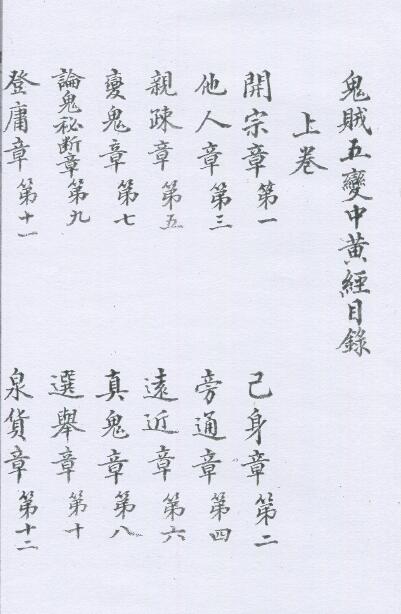 鬼賊五變中黃經目錄
上卷
開宗章第一
己身章第二
他人章第三
旁通章第四
親疎章第五
遠近章第六
變鬼章第七
真鬼章第八
論鬼秘断章第九
選舉章第十
登庸章第十一
泉貨章第十二